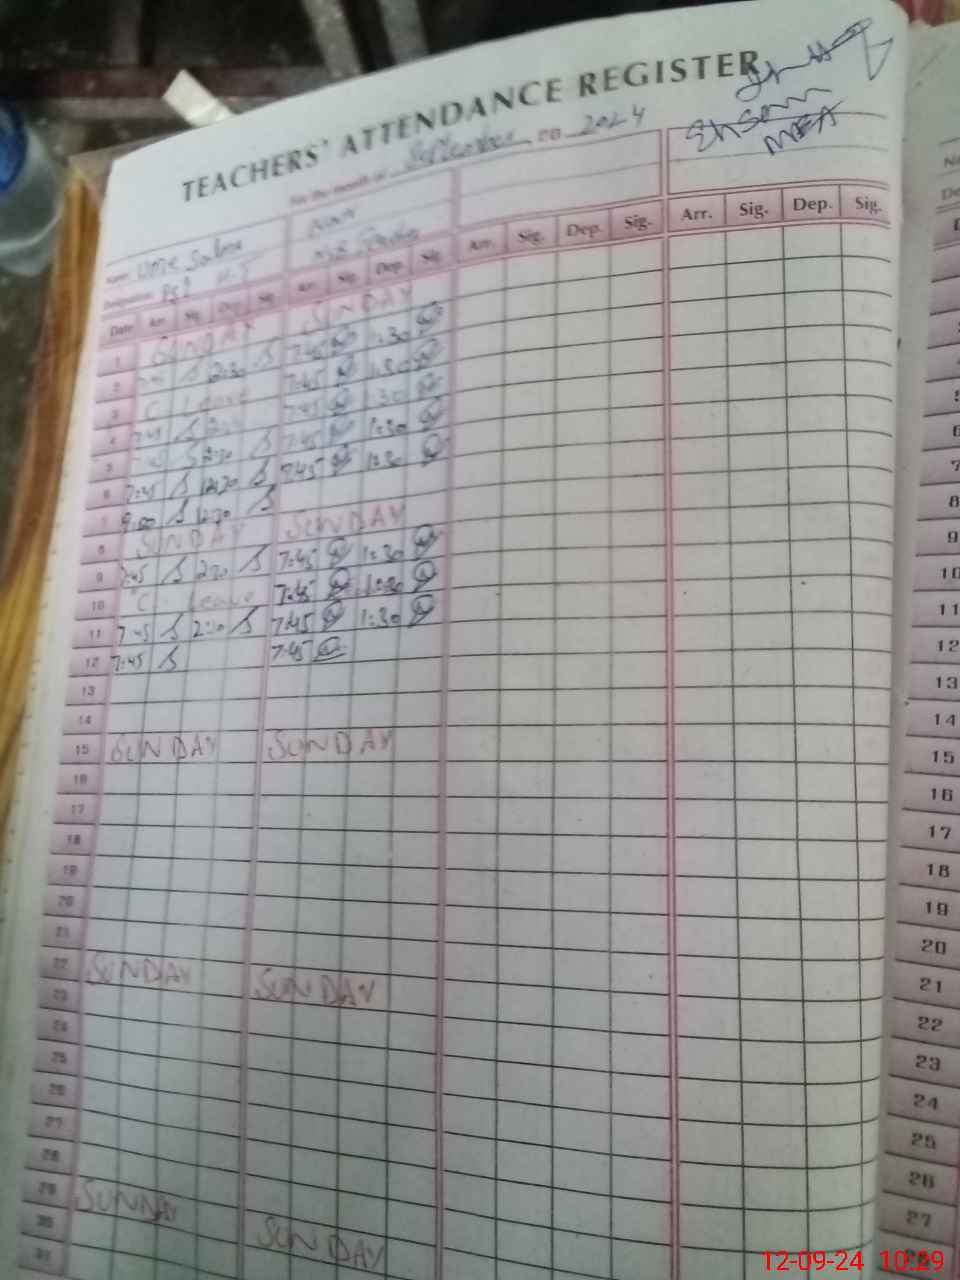 TEACHERS' ATTENDANCE REGISTER
Ehsan
MEA
For the month of September 20 2024
Name Ume Salma
Designation PST
Date Arr. Sig. Dep. Sig. Arr. Sig. Dep. Sig. Arr. Sig. Dep. Sig. Arr. Sig. Dep. Sig.
1 SUNDAY SUNDAY
2 7:45 1:30
3 C. Leave 7:45 1:30
4 7:45 7:45 1:30
5 7:45 1:30
6 7:45 7:45 1:30
7 9:00
8 SUNDAY SUNDAY
9 7:45 2:30 7:45 1:30
10 C. Leave 7:45 1:30
11 7:45 2:30 7:45 1:30
12 7:45 7:45
13
14
15 SUNDAY SUNDAY
16
17
18
19
20
21
22 SUNDAY SUNDAY
23
24
25
26
27
28
29 SUNDAY SUNDAY
30
31
6
7
8
9
10
11
12
13
14
15
16
17
18
19
20
21
22
23
24
25
26
27
12-09-24 10:29